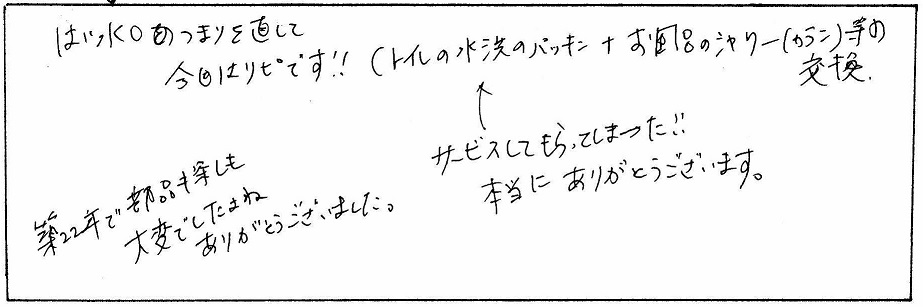 はい水口のつまりを直して
今回はリピです!! (トイレの水洗のパッキン + お風呂のシャワー(カラン)等の
交換.
↑
サービスしてもらってしまった!!
本当に ありがとうございます。
築22年で部品も探しも
大変でしたよね
ありがとうございました。